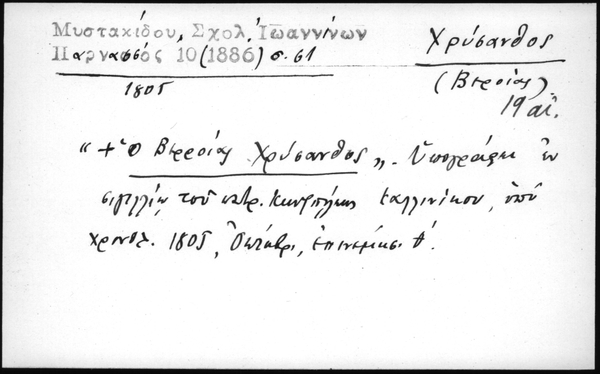 Μυστακίδου, Σχολ. Ἰωαννίνων
Παρνασσός 10(1886) σ. 61
1805
Χρύσανθος
(Βεροίας)
19 αἰ.
"+ ὁ Βερροίας Χρύσανθος". Ὑπογράφει ἐν
σιγιλλίῳ τοῦ πατρ. Κωνσ/πόλεως Καλλινίκου, ὑπὸ
χρονολ. 1805, Ὀκτώβρ., ἐπινεμήσ. θ΄.